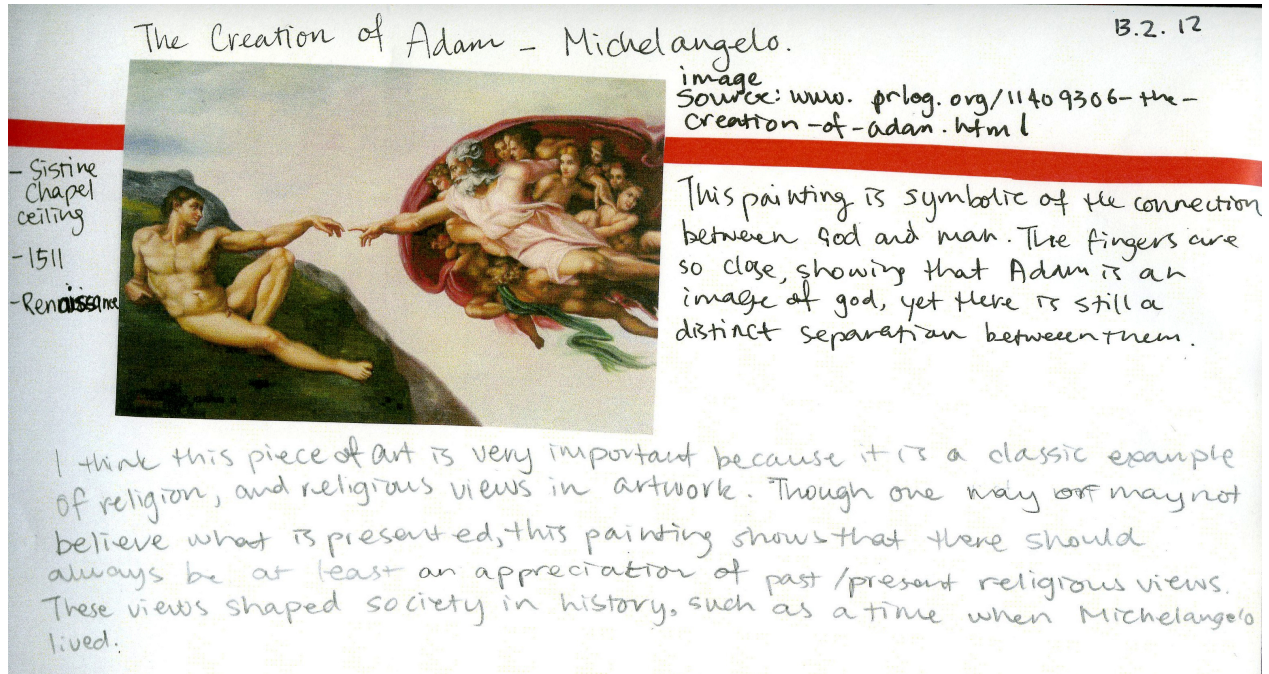 The Creation of Adam - Michelangelo.
13.2.12
image
Source: www. prlog.org/11409306-the-
creation-of-adan.html
- Sistine
Chapel
ceiling
- 1511
- Renaissance
This painting is symbolic of the connection
between God and man. The fingers are
so close, showing that Adam is an
image of god, yet there is still a
distinct separation between them.
I think this piece of art is very important because it is a classic example
of religion, and religious views in artwork. Though one may or may not
believe what is presented, this painting shows that there should
always be at least an appreciation of past/present religious views.
These views shaped society in history, such as a time when Michelangelo
lived.